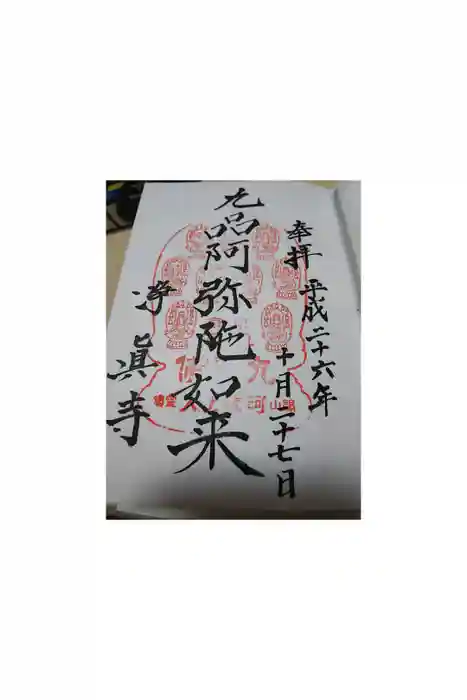 奉拝 平成二十六年
十月二十七日
九品阿弥陀如来
淨眞寺